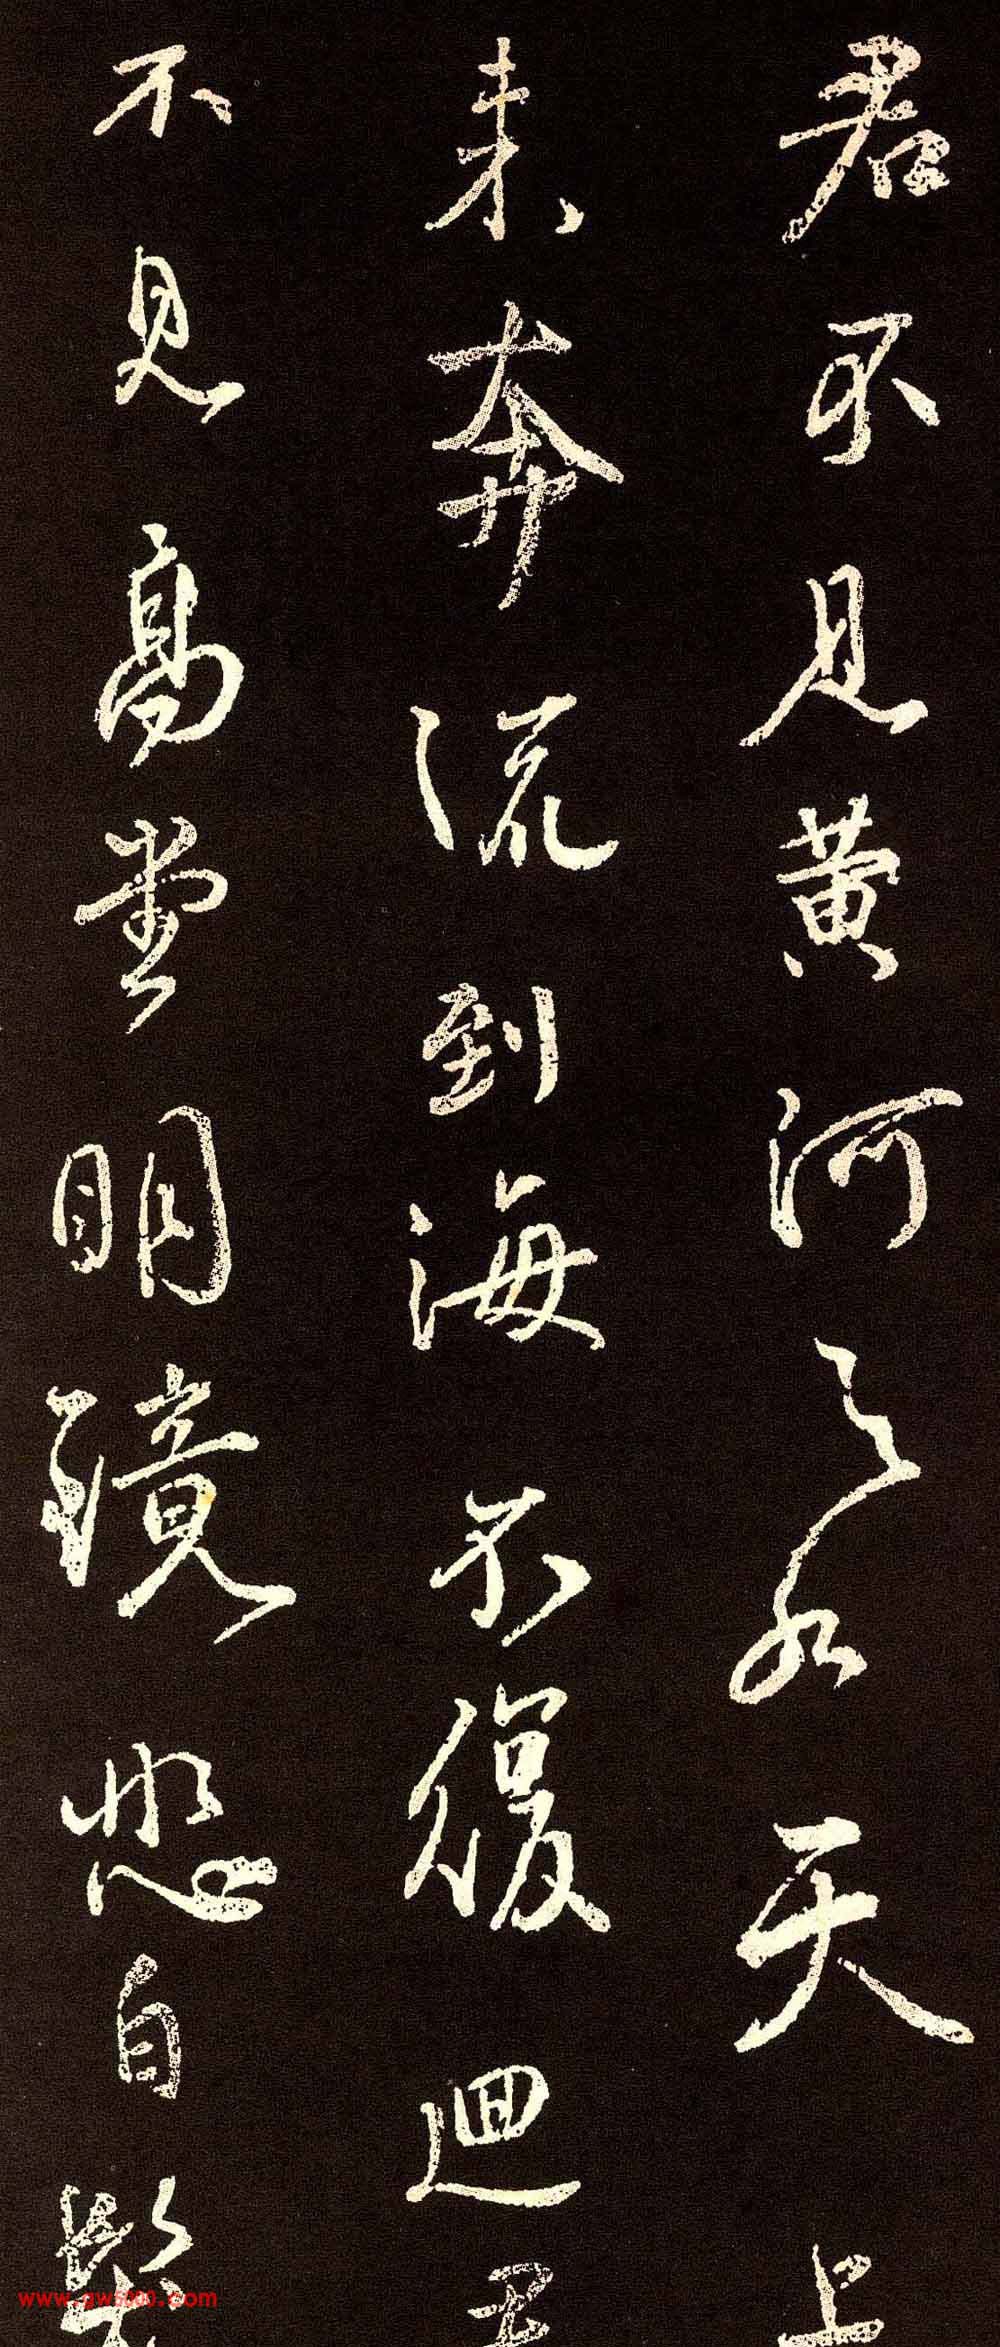 君不見黄河之水天上
来奔流到海不復迴君
不見高堂明鏡悲白髮
www.gw5000.com